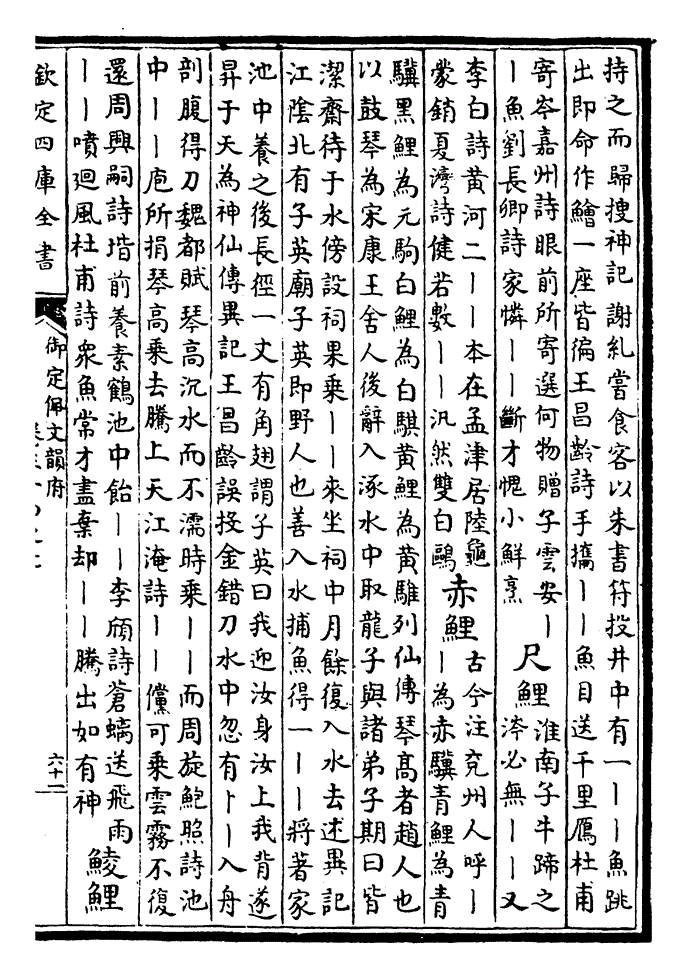 持之而歸搜神記謝糺嘗食客以朱書符投井中有一丨丨魚跳
出即命作鱠一座皆徧王昌齡詩手攜丨丨魚目送千里鴈杜甫
寄岑嘉州詩眼前所寄選何物贈子雲安丨
丨魚劉長卿詩家憐丨丨斷才愧小鮮烹
尺鯉
淮南子牛蹄之
涔必無丨丨又
李白詩黄河二丨丨本在孟津居陸龜
蒙銷夏灣詩健若數丨丨汎然雙白鷗
赤鯉
古今注兖州人呼丨
丨為赤驥青鯉為青
驥黑鯉為元駒白鯉為白騏黄鯉為黄騅列仙傳琴髙者趙人也
以鼓琴為宋康王舍人後辭入涿水中取龍子與諸弟子期曰皆
潔齋待于水傍設祠果乘丨丨來坐祠中月餘復入水去述異記
江陰北有子英廟子英即野人也善入水捕魚得一丨丨將著家
池中養之後長徑一丈有角翅謂子英曰我迎汝身汝上我背遂
昇于天為神仙傳異記王昌齡誤投金錯刀水中忽有丨丨入舟
剖腹得刀魏都賦琴高沉水而不濡時乘丨丨而周旋鮑照詩池
中丨丨庖所捐琴高乘去騰上天江淹詩丨丨儻可乘雲霧不復
還周興嗣詩堦前養素鶴池中飴丨丨李頎詩蒼螭送飛雨
丨丨噴廻風杜甫詩衆魚常才盡棄却丨丨騰出如有神
鯪鯉
欽定四庫全書
御定佩文韻府
六十二